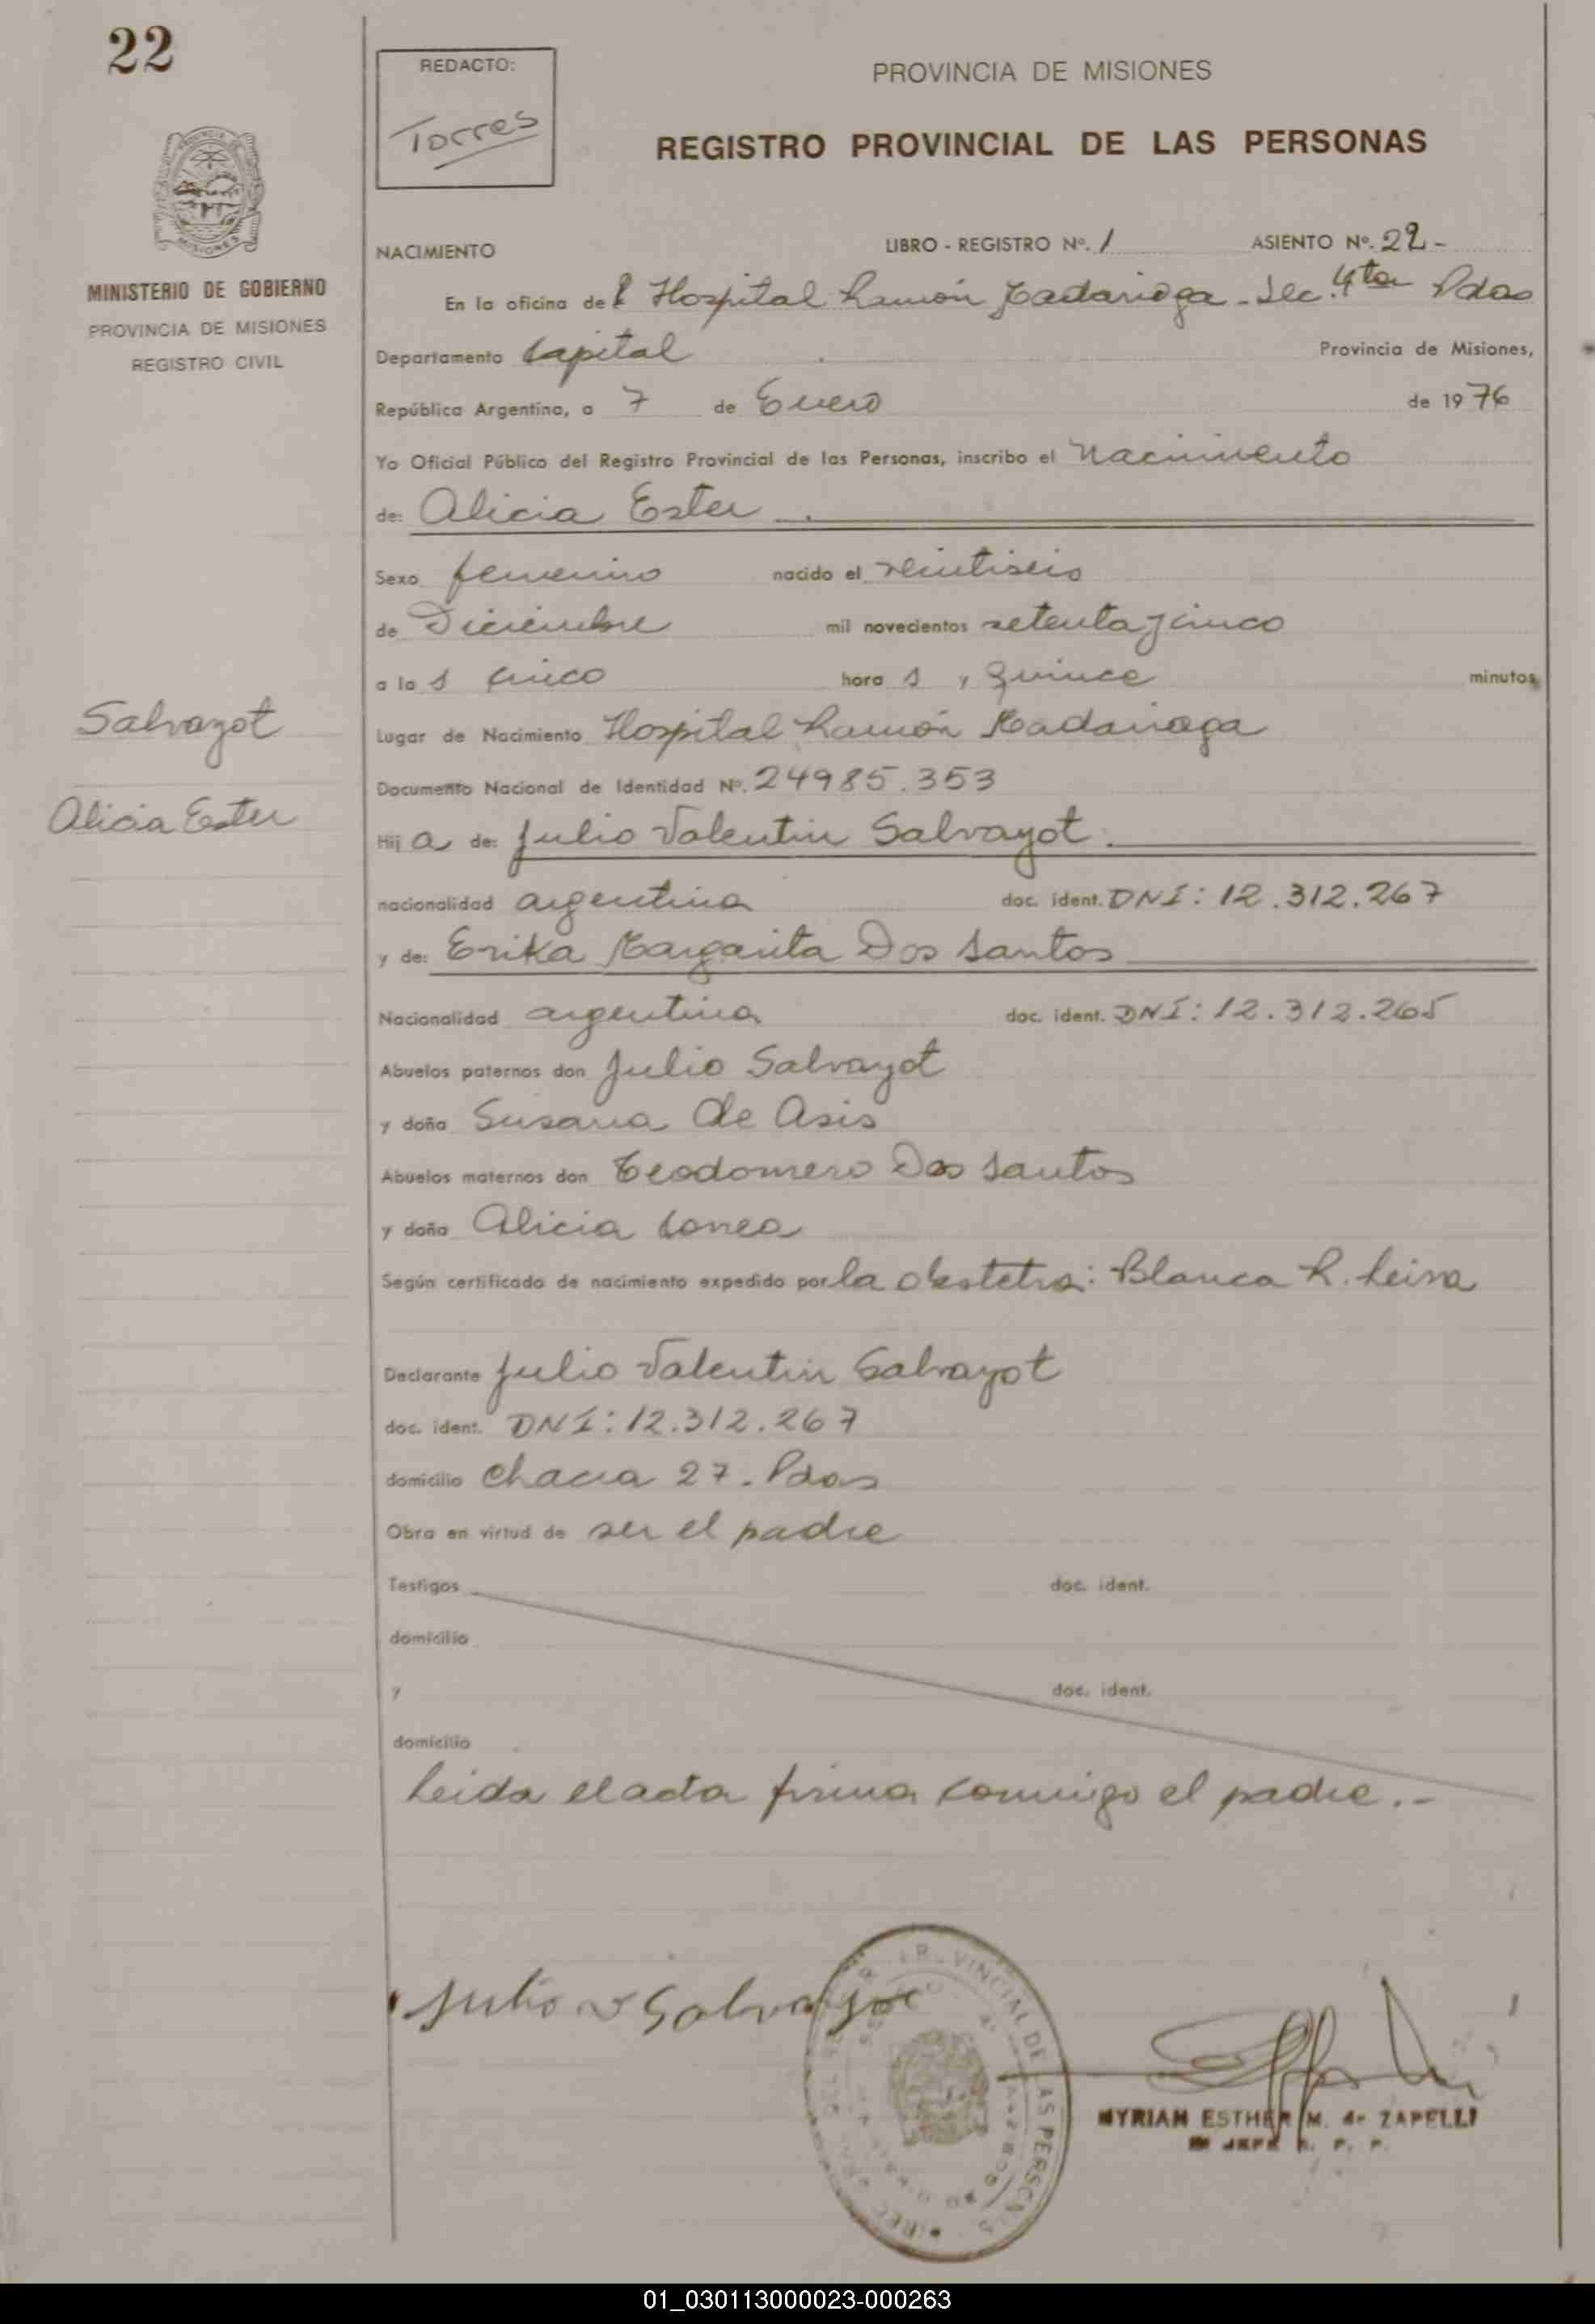 22
REDACTO:
Torres
PROVINCIA DE MISIONES
REGISTRO PROVINCIAL DE LAS PERSONAS
MISIONES
MINISTERIO DE GOBIERNO
PROVINCIA DE MISIONES
REGISTRO CIVIL
NACIMIENTO LIBRO - REGISTRO Nº. 1 ASIENTO Nº. 22 -
En la oficina del Hospital Ramón Madariaga - Sec. 4ta Pdas
Departamento Capital Provincia de Misiones,
República Argentina, a 7 de Enero de 1976
Yo Oficial Público del Registro Provincial de las Personas, inscribo el Nacimiento
de: Alicia Ester
Sexo femenino nacido el veintiseis
de Diciembre mil novecientos setenta y cinco
a las cinco horas y quince minutos
Salvayot
Lugar de Nacimiento Hospital Ramón Madariaga
Documento Nacional de Identidad Nº. 24985.353
Alicia Ester
Hija de: Julio Valentin Salvayot.
nacionalidad argentina doc. ident. DNI: 12.312.267
y de: Erika Margarita Dos Santos
Nacionalidad argentina doc. ident. DNI: 12.312.265
Abuelos paternos don Julio Salvayot
y doña Susana de Asis
Abuelos maternos don Teodomero Dos Santos
y doña Alicia Correa
Según certificado de nacimiento expedido por la obstetra: Blanca R. Leiva
Declarante Julio Valentin Salvayot
doc. ident. DNI: 12.312.267
domicilio Chacra 27. Pdas
Obra en virtud de ser el padre
Testigos doc. ident.
domicilio
y doc. ident.
domicilio
Leida el acta firma conmigo el padre.-
Julio V Salvayot
MYRIAN ESTHER M. de ZAPELLI
JEFE R. P. P.
01_030113000023-000263